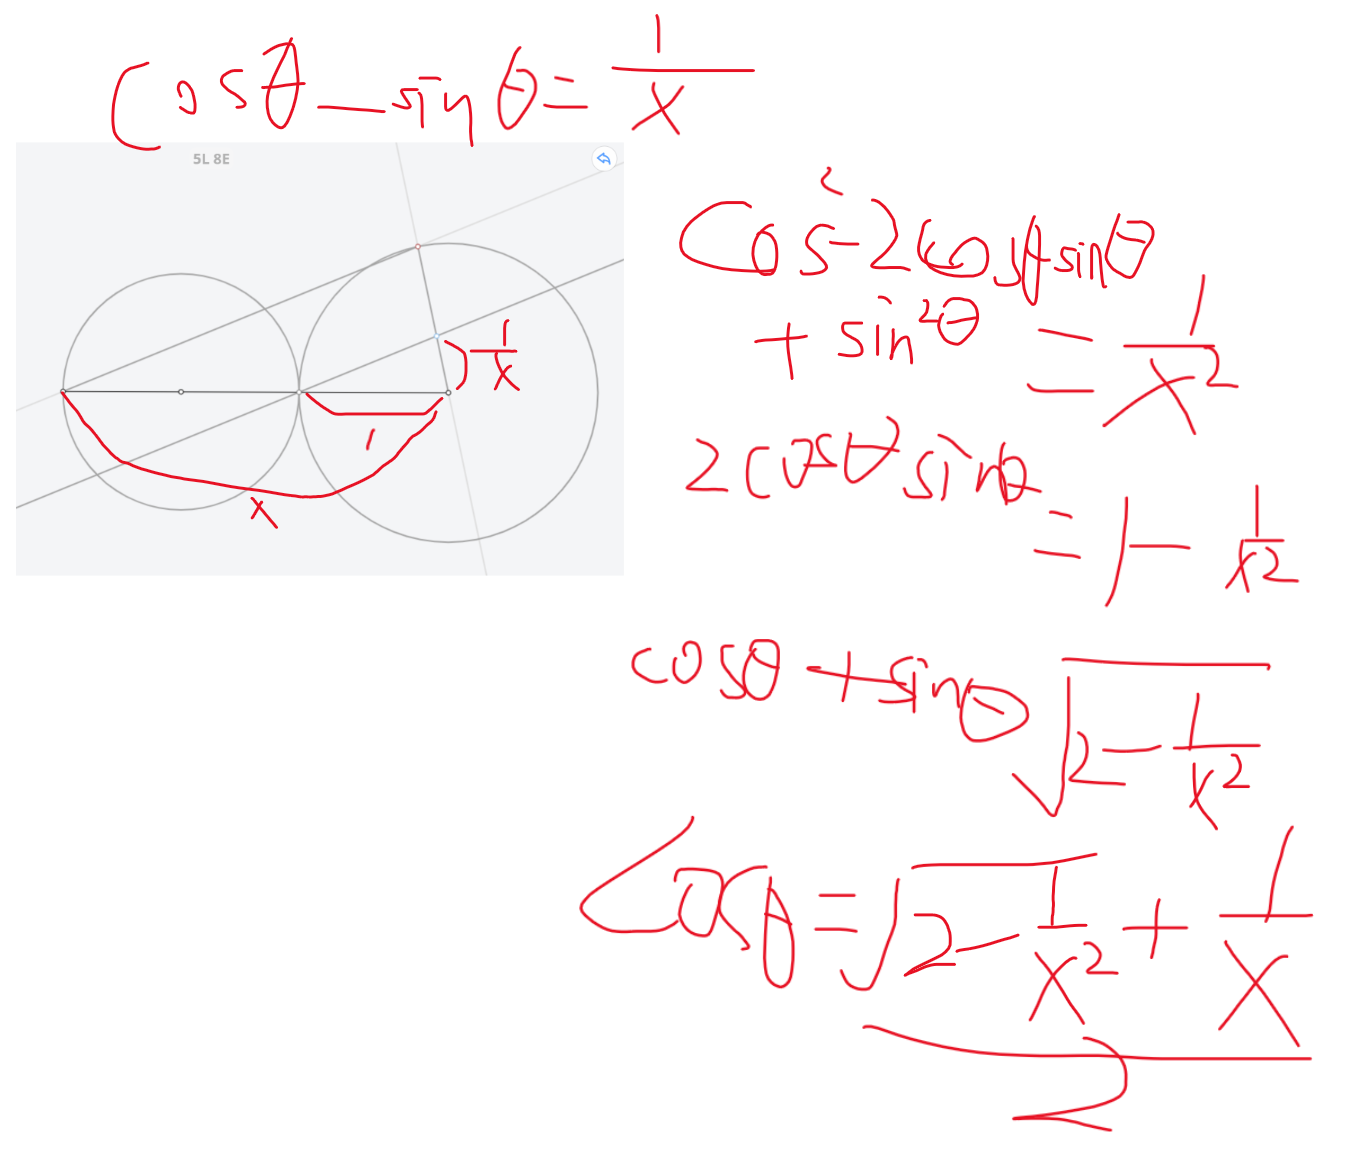 cosθ - sinθ = 1/x
5L 8E
1/x
1
x
cos² - 2cosθsinθ
+ sin²θ = 1/x²
2cosθsinθ
= 1 - 1/x²
cosθ + sinθ √(2 - 1/x²)
cosθ = (√(2 - 1/x²) + 1/x)/2